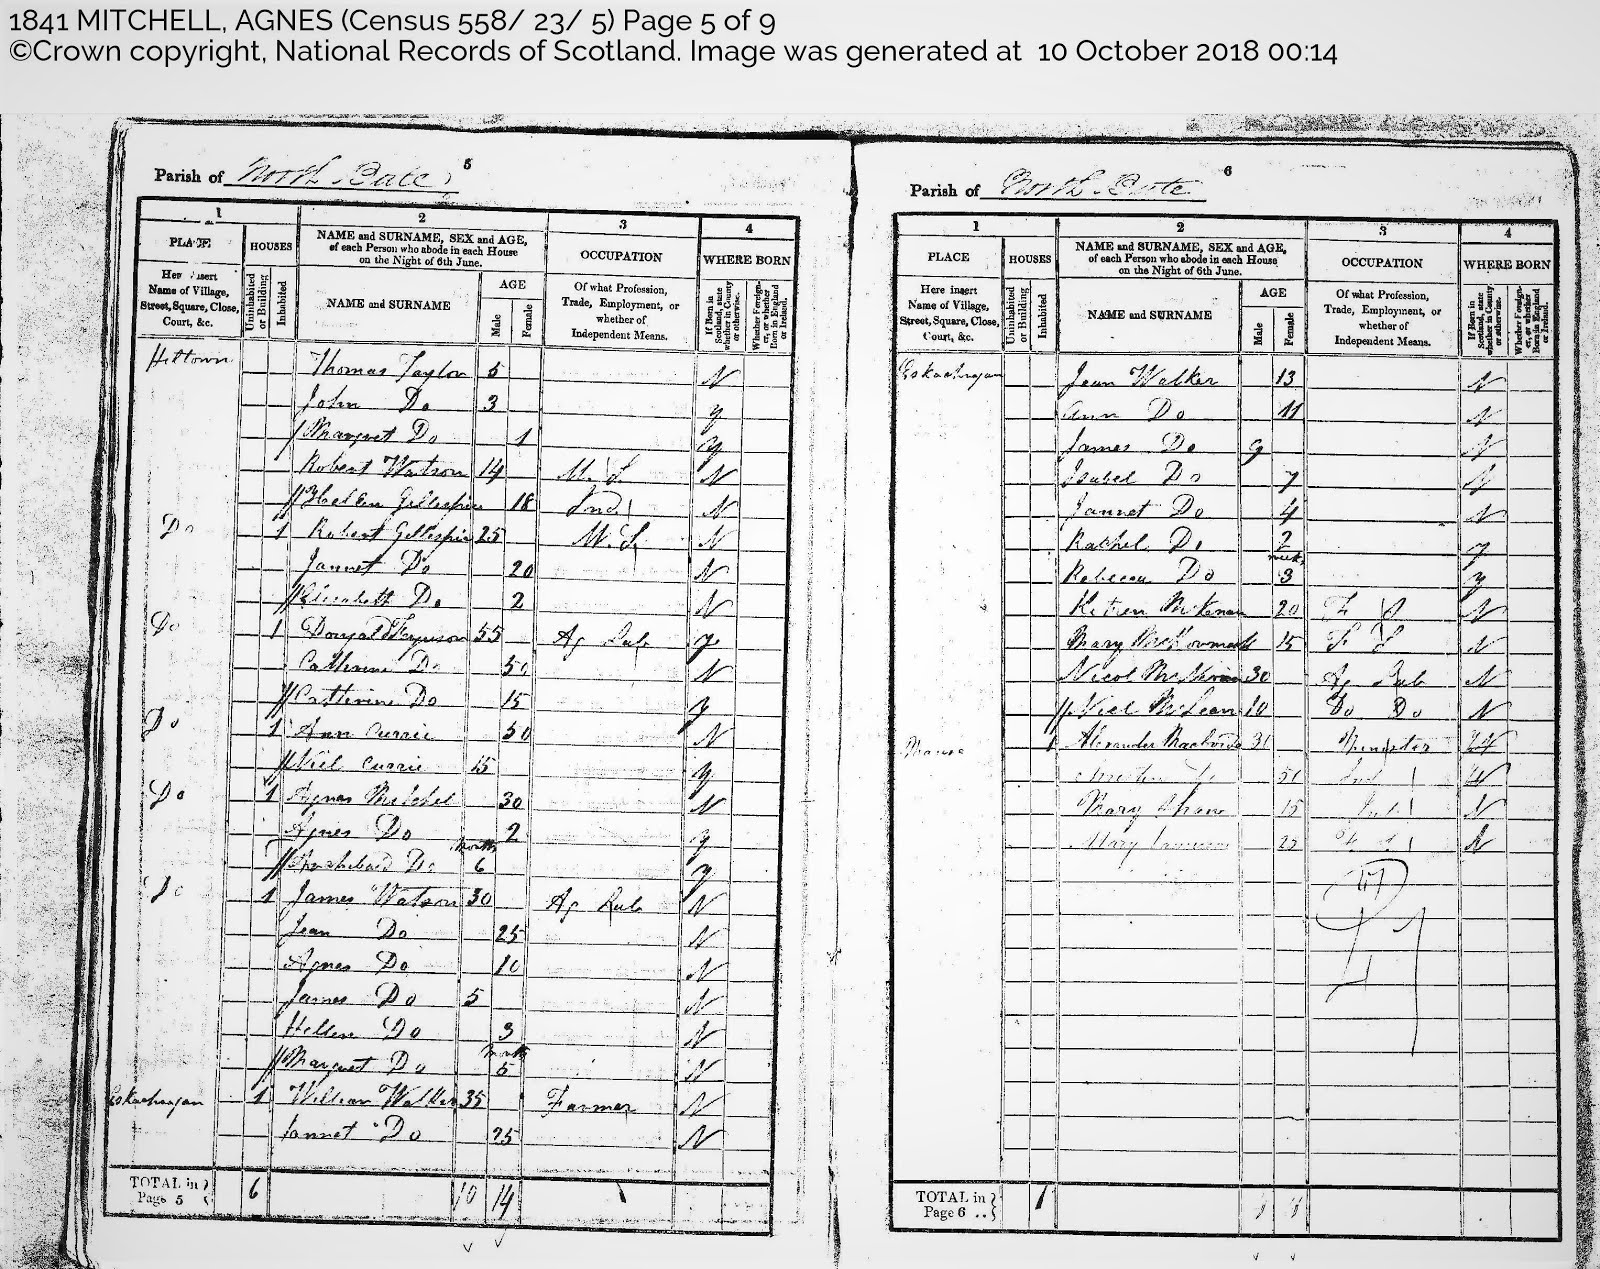 1841 MITCHELL, AGNES (Census 558/ 23/ 5) Page 5 of 9
©Crown copyright, National Records of Scotland. Image was generated at 10 October 2018 00:14
5
Parish of North Bute
1 2 3 4
PLACE HOUSES NAME and SURNAME, SEX and AGE, of each Person who abode in each House on the Night of 6th June. OCCUPATION WHERE BORN
Here insert Name of Village, Street, Square, Close, Court, &c.
Uninhabited or Building
Inhabited
NAME and SURNAME
AGE
Male
Female
Of what Profession, Trade, Employment, or whether of Independent Means.
If Born in Scotland, state whether in County or otherwise.
Whether Foreigner, or whether Born in England or Ireland.
Thomas Taylor 5 N
John Do 3 y
Margret Do 1 y
Robert Watson 14 M. S N
Hellen Gillespie 18 Ind N
Do 1 Robert Gillespie 25 M. S N
Jannet Do 20 N
Elisabeth Do 2 N
Do 1 55 Ag Lab y
Catherine Do 50 N
Catherine Do 15 y
Do 1 Ann Currie 50 N
Niel Currie 15 y
Do 1 Agnes Mitchel 30 N
Agnes Do 2 y
Archibald Do 6 months y
Do 1 James Watson 30 Ag Lab N
Jean Do 25 N
Agnes Do 10 N
James Do 5 N
Hellen Do 3 N
Margret Do 5 months N
1 William Walker 35 Farmer N
Jannet Do 25 N
TOTAL in Page 5 6 10 14
6
Parish of North Bute
1 2 3 4
PLACE HOUSES NAME and SURNAME, SEX and AGE, of each Person who abode in each House on the Night of 6th June. OCCUPATION WHERE BORN
Here insert Name of Village, Street, Square, Close, Court, &c.
Uninhabited or Building
Inhabited
NAME and SURNAME
AGE
Male
Female
Of what Profession, Trade, Employment, or whether of Independent Means.
If Born in Scotland, state whether in County or otherwise.
Whether Foreigner, or whether Born in England or Ireland.
Jean Walker 13 N
Ann Do 11 N
James Do 9 N
Isabel Do 7 N
Jannet Do 4 N
Rachel Do 2 y
Rebecca Do 3 weeks y
20 F S N
Mary 15 F S N
Nicol 30 Ag Lab N
Niel McLean 10 Do Do N
Manse 1 Alexander 31 Minister
50 Ind N
Mary Shaw 15 Ind N
Mary F S N
TOTAL in Page 6 .. 1